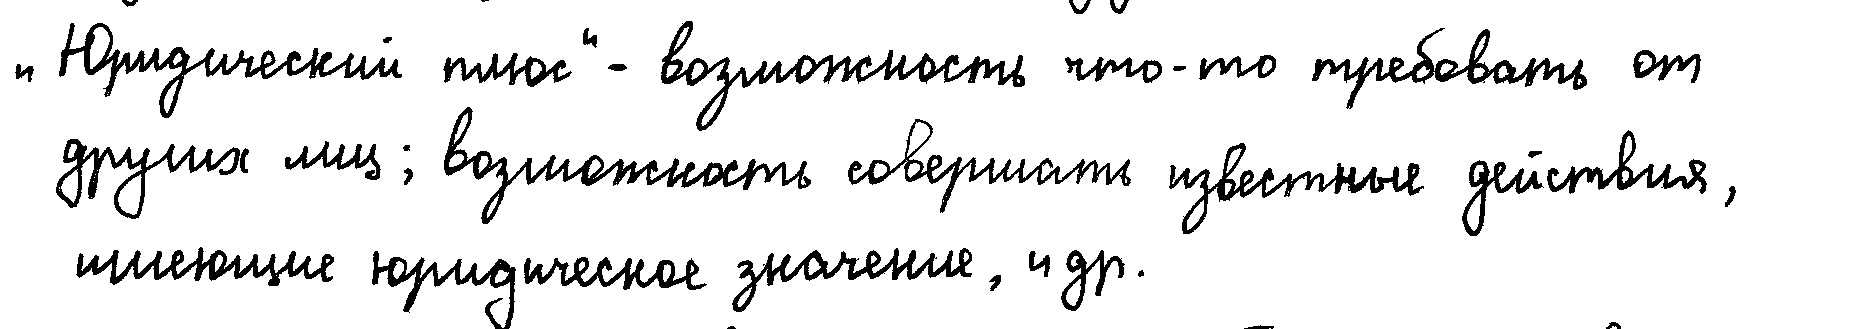 „Юридический плюс" - возможность что-то требовать от
других лиц; возможность совершать известные действия,
имеющие юридическое значение, и др.